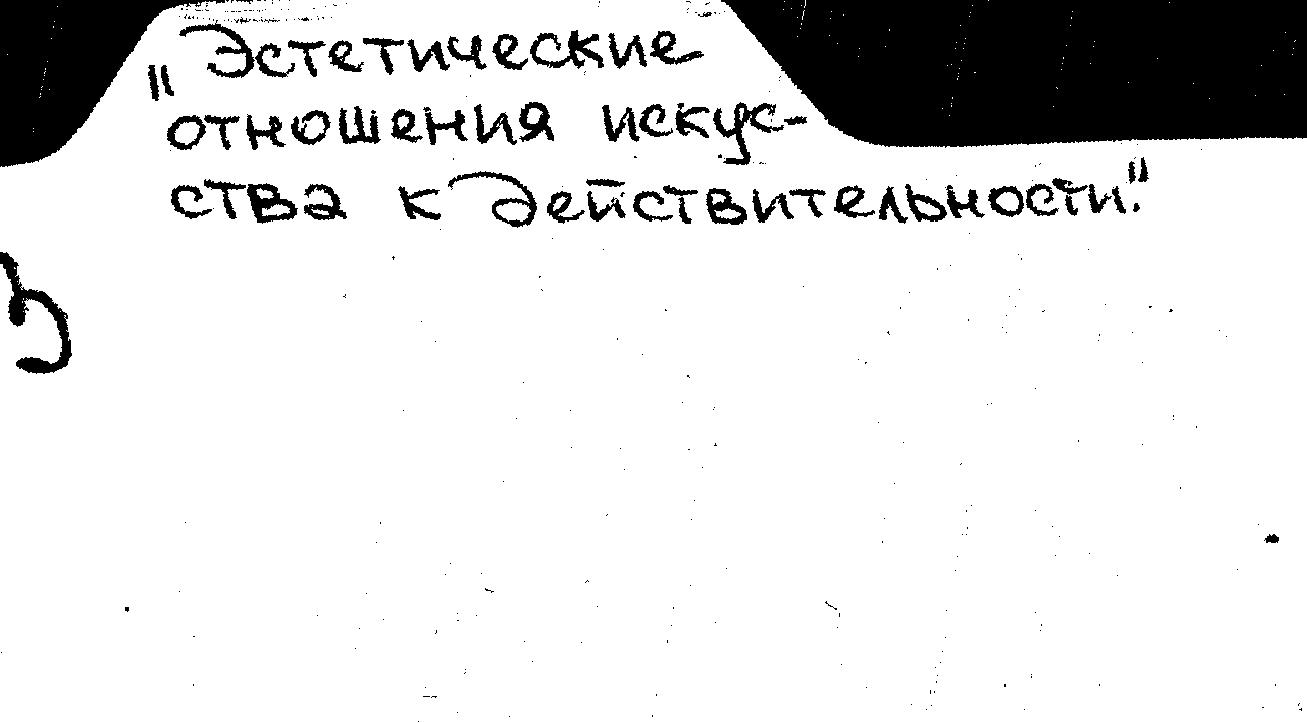 „Эстетические
отношения искус-
ства к действительности."